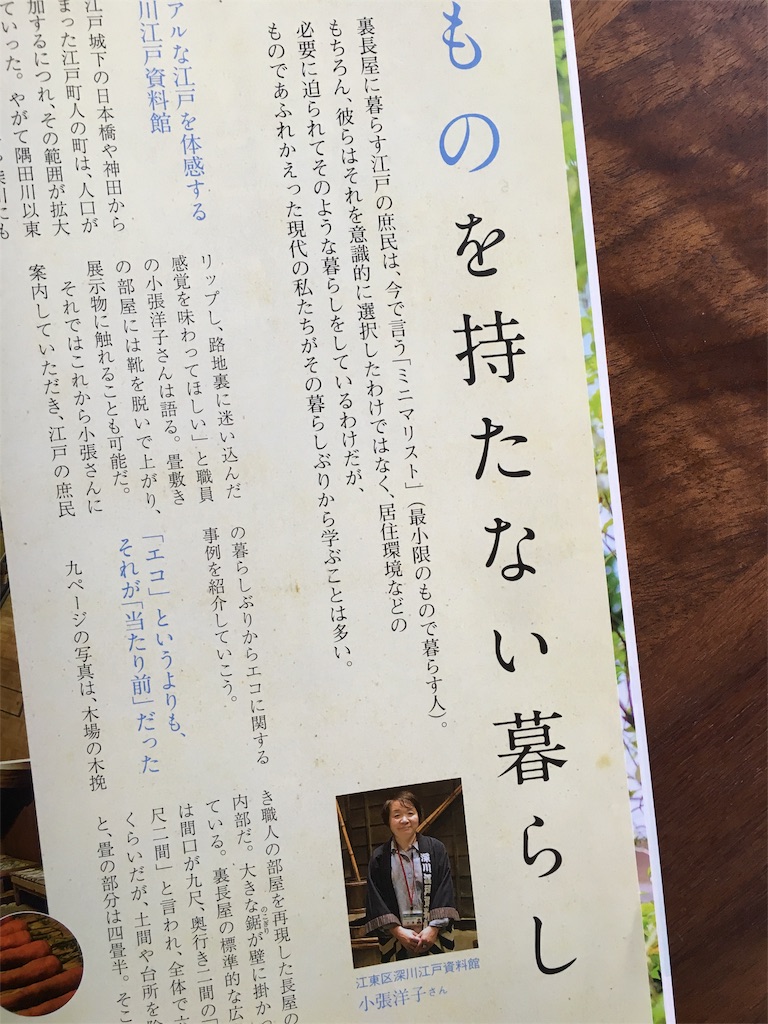 ものを持たない暮らし
裏長屋に暮らす江戸の庶民は、今で言う「ミニマリスト」（最小限のもので暮らす人）。
もちろん、彼らはそれを意識的に選択したわけではなく、居住環境などの
必要に迫られてそのような暮らしをしているわけだが、
ものであふれかえった現代の私たちがその暮らしぶりから学ぶことは多い。
アルな江戸を体感する
川江戸資料館
江戸城下の日本橋や神田から
まった江戸町人の町は、人口が
加するにつれ、その範囲が拡大
ていった。やがて隅田川以東
深川にも
リップし、路地裏に迷い込んだ
感覚を味わってほしい」と職員
の小張洋子さんは語る。畳敷き
の部屋には靴を脱いで上がり、
展示物に触れることも可能だ。
それではこれから小張さんに
案内していただき、江戸の庶民
の暮らしぶりからエコに関する
事例を紹介していこう。
「エコ」というよりも、
それが「当たり前」だった
九ページの写真は、木場の木挽
き職人の部屋を再現した長屋の
内部だ。大きな鋸が壁に掛かっ
のこぎり
ている。裏長屋の標準的な広
は間口が九尺、奥行き二間の「
尺二間」と言われ、全体で六
くらいだが、土間や台所を除
と、畳の部分は四畳半。そこ
深川江戸資
江東区深川江戸資料館
小張洋子さん